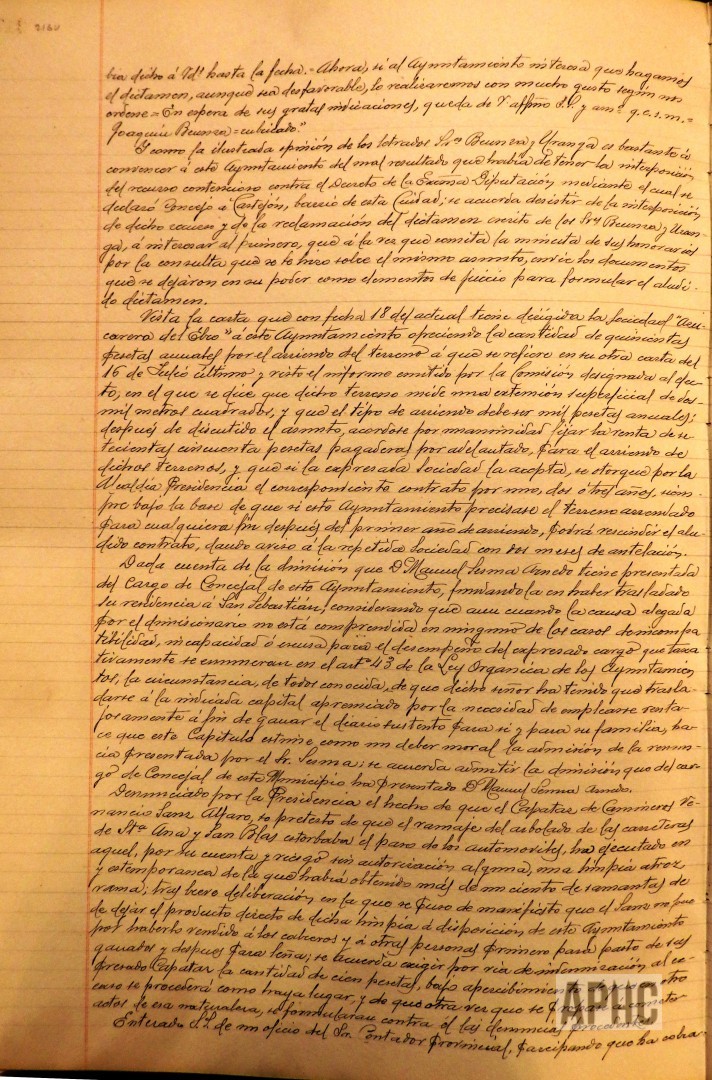 bia dicho á Vds. hasta la fecha.= Ahora, si al Ayuntamiento interesa que hagamos
el dictamen, aunque sea desfavorable, lo realizaremos con mucho gusto según sus
ordenes= En espera de sus gratas indicaciones, queda de V. affmo S.S. y amº q.e.s.m.=
Joaquín Beunza= rubricado."
Y como la ilustrada opinión de los letrados Sres Beunza y Uranga es bastante á
convencer á este Ayuntamiento del mal resultado que habría de tener la interposición
del recurso contencioso contra el Decreto de la Excma Diputación mediante el cual se
declaró Concejo á Castejón, barrio de esta Ciudad; se acuerda desistir de la interposición
de dicho recurso y de la reclamación del dictamen escrito de los Sres Beunza y Uran-
ga, á interesar al primero, que á la vez que remita la minuta de sus honorarios
por la consulta que se le hizo sobre el mismo asunto, envíe los documentos
que se dejaron en su poder como elementos de juicio para formular el aludi-
do dictamen.
Vista la carta que con fecha 18 del actual tiene dirigida la Sociedad "Azu-
carera del Ebro" á este Ayuntamiento ofreciendo la cantidad de quinientas
pesetas anuales por el arriendo del terreno á que se refiere en su otra carta del
16 de Julio último y visto el informe emitido por la Comisión designada al efec-
to, en el que se dice que dicho terreno mide una extensión superficial de dos
mil metros cuadrados, y que el tipo de arriendo debe ser mil pesetas anuales;
después de discutido el asunto, acordose por unanimidad fijar la renta de se-
tecientas cincuenta pesetas pagaderas por adelantado, para el arriendo de
dichos terrenos, y que si la expresada Sociedad la acepta, se otorgue por la
Alcaldía Presidencia el correspondiente contrato por uno, dos ó tres años, siem-
pre bajo la base de que si este Ayuntamiento precisase el terreno arrendado
para cualquiera fin después del primer año de arriendo, podrá rescindir el alu-
dido contrato, dando aviso á la repetida Sociedad con dos meses de antelación.
Dada cuenta de la dimisión que D. Manuel Sesma Arnedo tiene presentada
del cargo de Concejal de este Ayuntamiento, fundándola en haber trasladado
su residencia á San Sebastián; considerando que aun cuando la causa alegada
por el dimisionario no está comprendida en ninguno de los casos de incompa-
tibilidad, incapacidad ó excusa para el desempeño del expresado cargo que taxa-
tivamente se enumeran en el artº 43 de la Ley Organica de los Ayuntamien-
tos, la circunstancia, de todos conocida, de que dicho señor ha tenido que trasla-
darse á la indicada capital apremiado por la necesidad de emplearse venta-
josamente á fin de ganar el diario sustento para si y para su familia, ha-
ce que este Capítulo estime como un deber moral la admisión de la renun-
cia presentada por el Sr. Sesma; se acuerda admitir la dimisión que del car-
go de Concejal de este Municipio ha presentado D. Manuel Sesma Arnedo.
Denunciado por la Presidencia el hecho de que el Capataz de Camineros Ve-
nancio Sanz Alfaro, so pretesto de que el ramaje del arbolado de las carreteras
de Stª Ana y San Blas estorbaba el paso de los automoviles, ha ejecutado en
aquel, por su cuenta y riesgo sin autorización alguna, una limpia atroz
y extemporanea de la que habrá obtenido más de un ciento de samantas de
rama; tras breve deliberación en la que se puso de manifiesto que el Sanz no pue-
de dejar el producto directo de dicha limpia á disposición de este Ayuntamiento
por haberlo vendido á los cabreros y á otras personas primero para pasto de sus
ganados y después para leña; se acuerda exigir por via de indemnización al ex-
presado Capataz la cantidad de cien pesetas, bajo apercibimiento otro
caso se procederá como haya lugar, y de que otra vez que se cometer
actos de esa naturaleza, se formularan contra el las denuncias procedentes.
Enterado S.S. de un oficio del Sr. Contador provincial, participando que ha cobra-
APHC